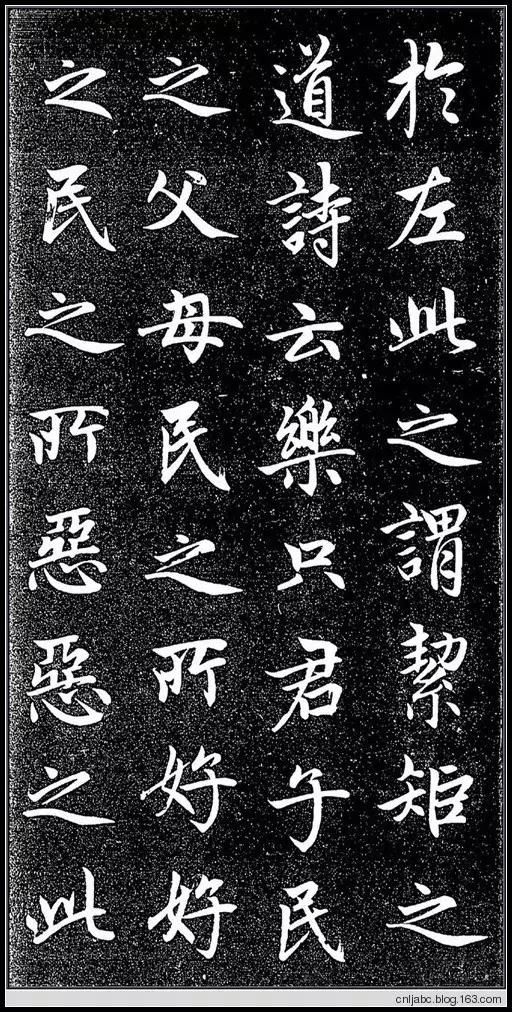 於左此之謂絜矩之
道詩云樂只君子民
之父母民之所好好
之民之所惡惡之此
cnljabc.blog.163.com